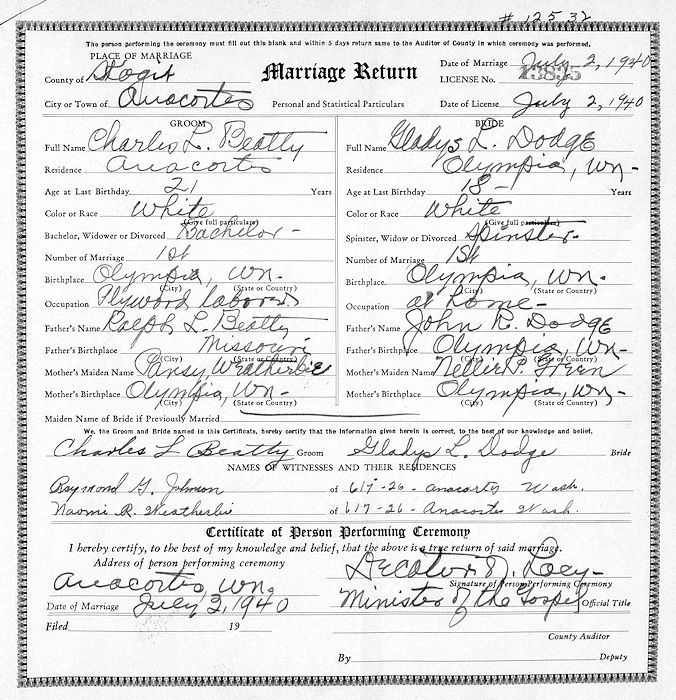 # 12532
The person performing the ceremony must fill out this blank and within 5 days return same to the Auditor of County in which ceremony was performed.
PLACE OF MARRIAGE
County of Skagit
City or Town of Anacortes
Marriage Return
Personal and Statistical Particulars
Date of Marriage July 2, 1940
LICENSE No. 13835
Date of License July 2, 1940
GROOM
Full Name Charles L. Beatty
Residence Anacortes
Age at Last Birthday 21 Years
Color or Race White
(Give full particulars)
Bachelor, Widower or Divorced Bachelor -
Number of Marriage 1st
Birthplace Olympia, Wn.
(City) (State or Country)
Occupation Plywood laborer
Father's Name Ralph L. Beatty
Father's Birthplace Missouri
(City) (State or Country)
Mother's Maiden Name Pansy Weatherbie
Mother's Birthplace Olympia, Wn-
(City) (State or Country)
BRIDE
Full Name Gladys L. Dodge
Residence Olympia, Wn-
Age at Last Birthday 18- Years
Color or Race White
(Give full particulars)
Spinster, Widow or Divorced Spinster-
Number of Marriage 1st
Birthplace Olympia, Wn-
(City) (State or Country)
Occupation at Home-
Father's Name John R. Dodge
Father's Birthplace Olympia, Wn-
(City) (State or Country)
Mother's Maiden Name Nellie P. Green
Mother's Birthplace Olympia, Wn-
(City) (State or Country)
Maiden Name of Bride if Previously Married
We, the Groom and Bride named in this Certificate, hereby certify that the information given herein is correct, to the best of our knowledge and belief.
Charles L Beatty Groom Gladys L. Dodge Bride
NAMES OF WITNESSES AND THEIR RESIDENCES
Raymond G. Johnson of 617-26- Anacortes Wash.
Naomi R. Weatherbie of 617-26- Anacortes Wash.
Certificate of Person Performing Ceremony
I hereby certify, to the best of my knowledge and belief, that the above is a true return of said marriage.
Address of person performing ceremony
Anacortes, Wn.
Signature of Person Performing Ceremony
Date of Marriage July 2, 1940
Minister of the Gospel Official Title
Filed 19
County Auditor
By Deputy